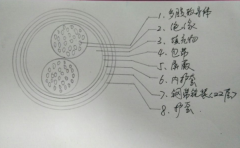 1. 多股铜导体
2. 绝缘
3. 填充物
4. 包带
5. 屏蔽
6. 内护套
7. 钢带铠装(双层)
8. 护套